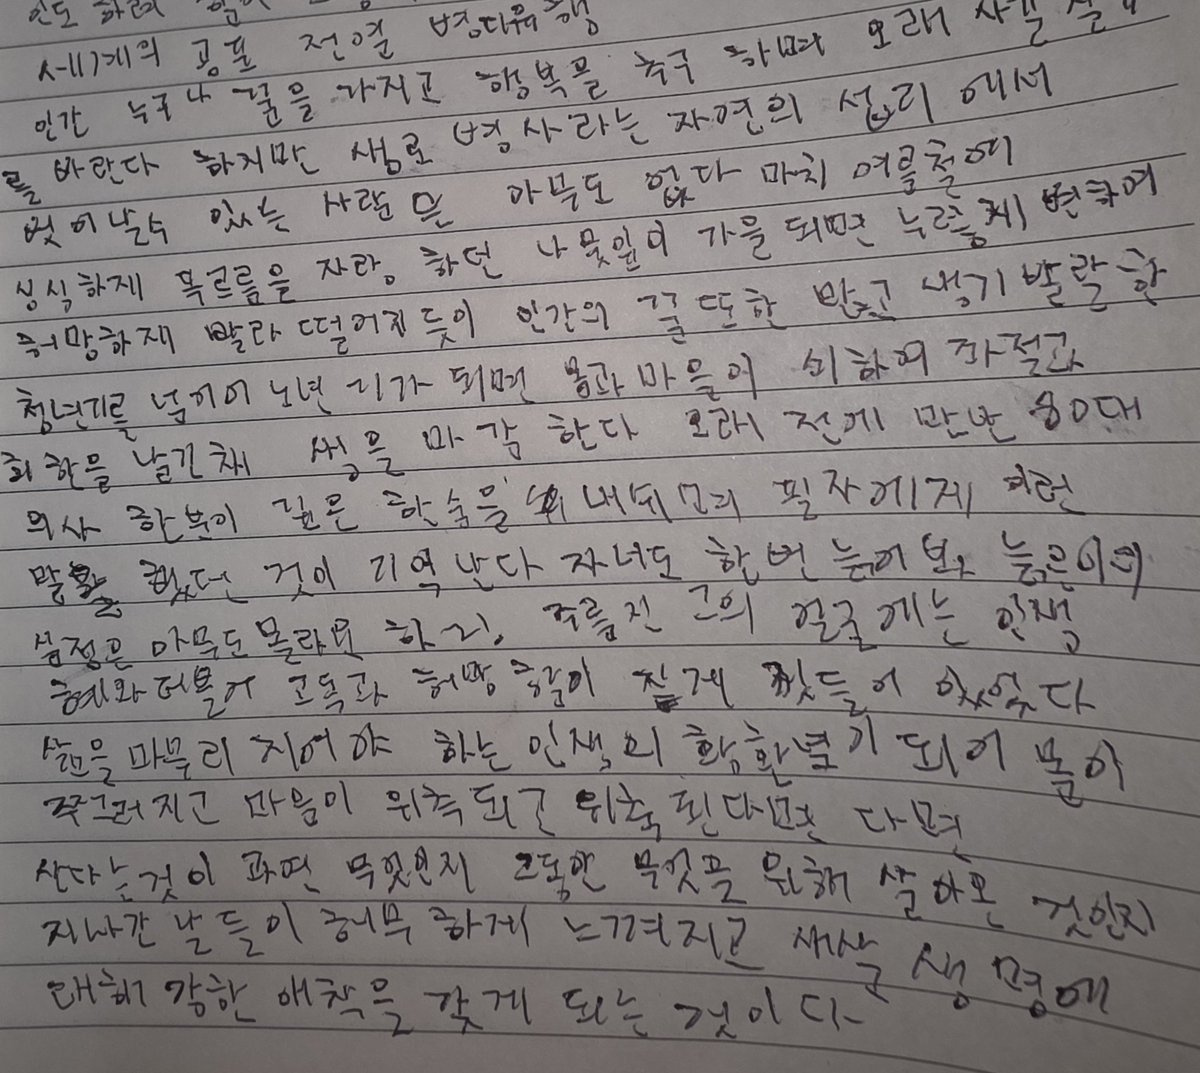 인도 하려
세계의 공포 전염 병대유행
인간 누구나 꿈을 가지고 행복을 추구 하며 오래 사길
를 바란다 하지만 생로 병사라는 자연의 섭리 에서
벗어날수 있는 사람은 아무도 없다 마치 여름철에
싱식하제 푸르름을 자랑 하던 나뭇잎이 가을 되면 누렇게 변하여
허망하제 말라 떨어지듯이 인간의 꿈또한 맑고 생기 발랄 한
청년기를 넘기어 노년 기가 되면 몸과 마음이 쇠하여 좌절과
회한을 남긴채 생을 마감 한다 오래 전에 만난 80대
의사 한분이 깊은 한숨을 내쉬며 필자에게 이런
말을 했던 것이 기억난다 자녀도 한번 늙어보소 늙은이의
심정은 아무도 몰라요 하고. 주름진 그의 얼굴에는 인생
혜와 더불어 고독과 허망 함이 짙게 깃들어 있었다
삶을 마무리 지어야 하는 인생의 황혼녘기 되어 몸이
쭈그러지고 마음이 위축되고 위축 된다면 다면
산다는것이 과연 무엇인지 그동안 무엇을 위해 살아온 것인지
지나간 날들이 허무 하게 느껴지고 새삼 생 명에
대해 강한 애착을 갖게 되는 것이다